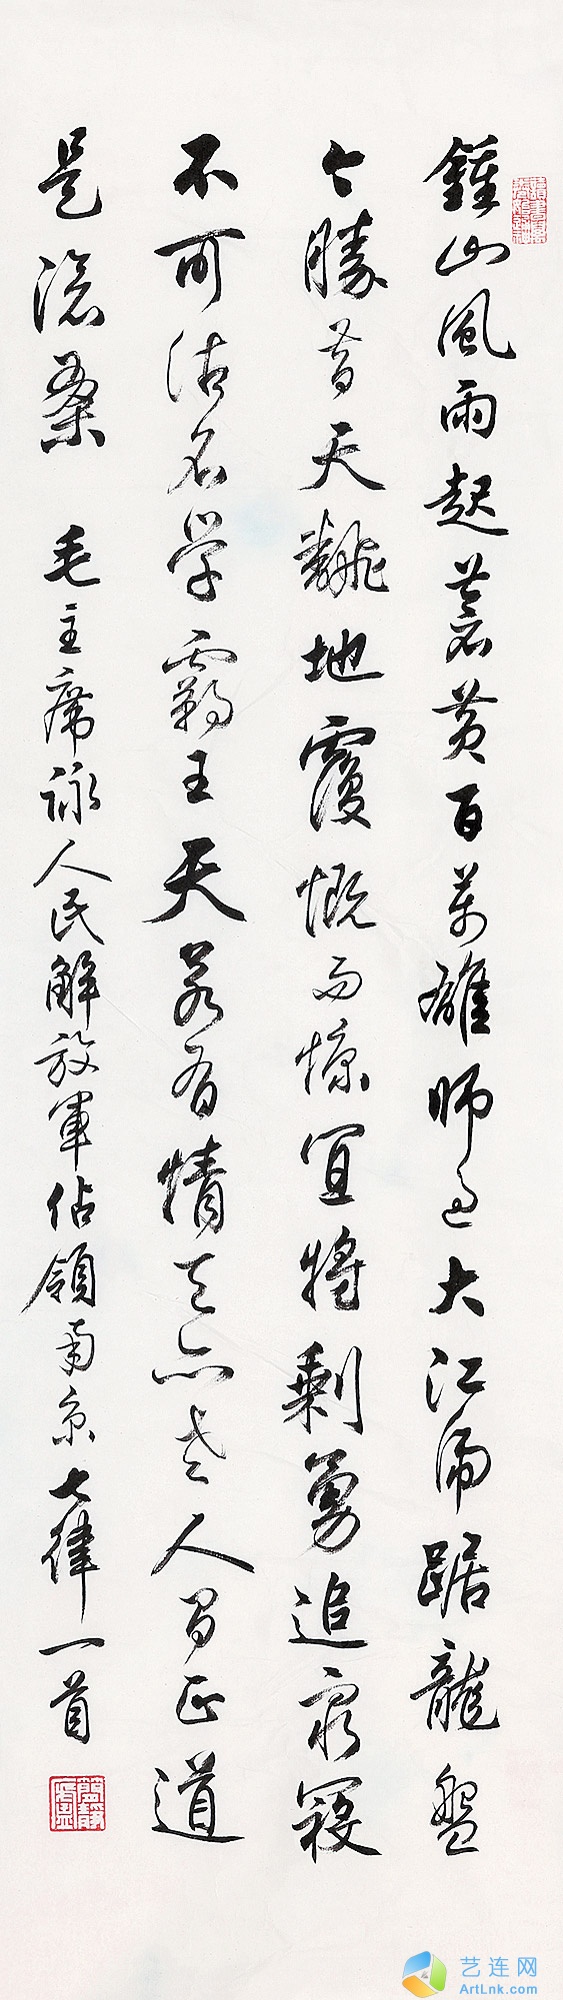 鍾山風雨起蒼黄百萬雄師過大江虎踞龍盤
今勝昔天翻地覆慨而慷宜將剩勇追窮寇
不可沽名学霸王天若有情天亦老人间正道
是滄桑 毛主席詠人民解放軍佔領南京七律一首
艺连网
ArtLnk.com